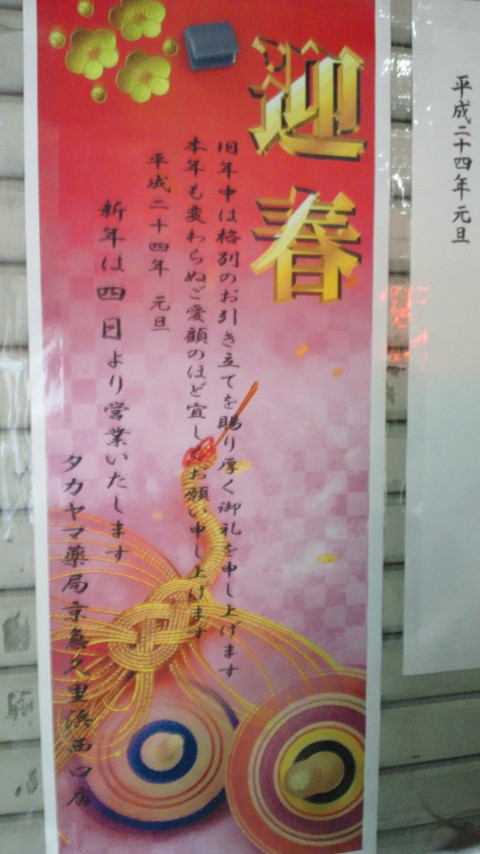 平成二十四年 元旦
迎春
旧年中は格別のお引き立てを賜り厚く御礼を申し上げます
本年も変わらぬご愛顧のほど宜しくお願い申し上げます
平成二十四年 元旦
新年は四日より営業いたします
タカヤマ薬局京急久里浜西口店